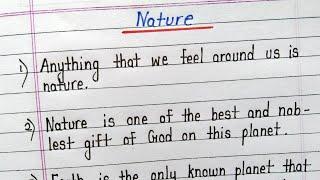 Nature
1) Anything that we feel around us is
nature.
2) Nature is one of the best and nob-
lest gift of God on this planet.
3) Earth is the only known planet that